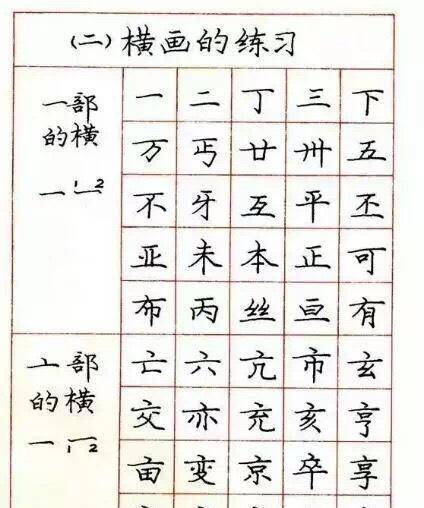 (二)横画的练习
一部的横
一 二 丁 三 下
万 丐 廿 卅 五
不 牙 互 平 丕
亚 未 本 正 可
布 丙 丝 亘 有
亠部的横
亡 六 亢 市 玄
交 亦 充 亥 亨
亩 变 京 卒 享